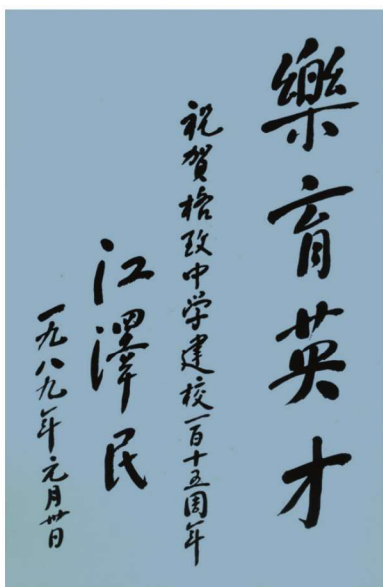 樂育英才
祝賀格致中学建校一百十五周年
江澤民
一九八九年元月卅日